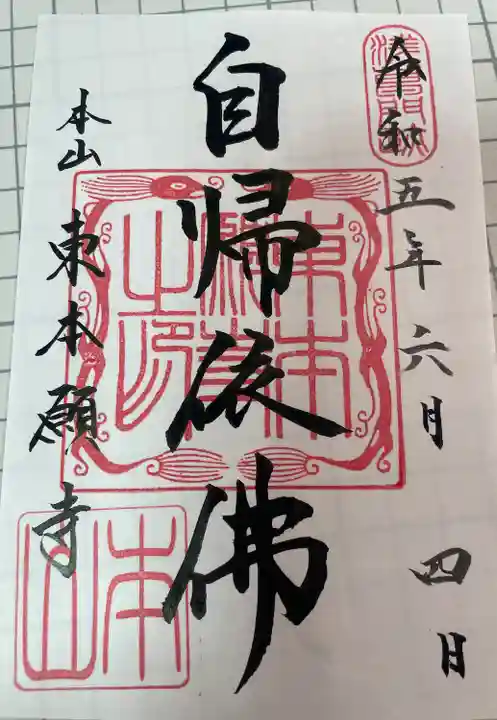 令和五年六月四日
自帰依佛
本山東本願寺
東本
願寺
之印
本山